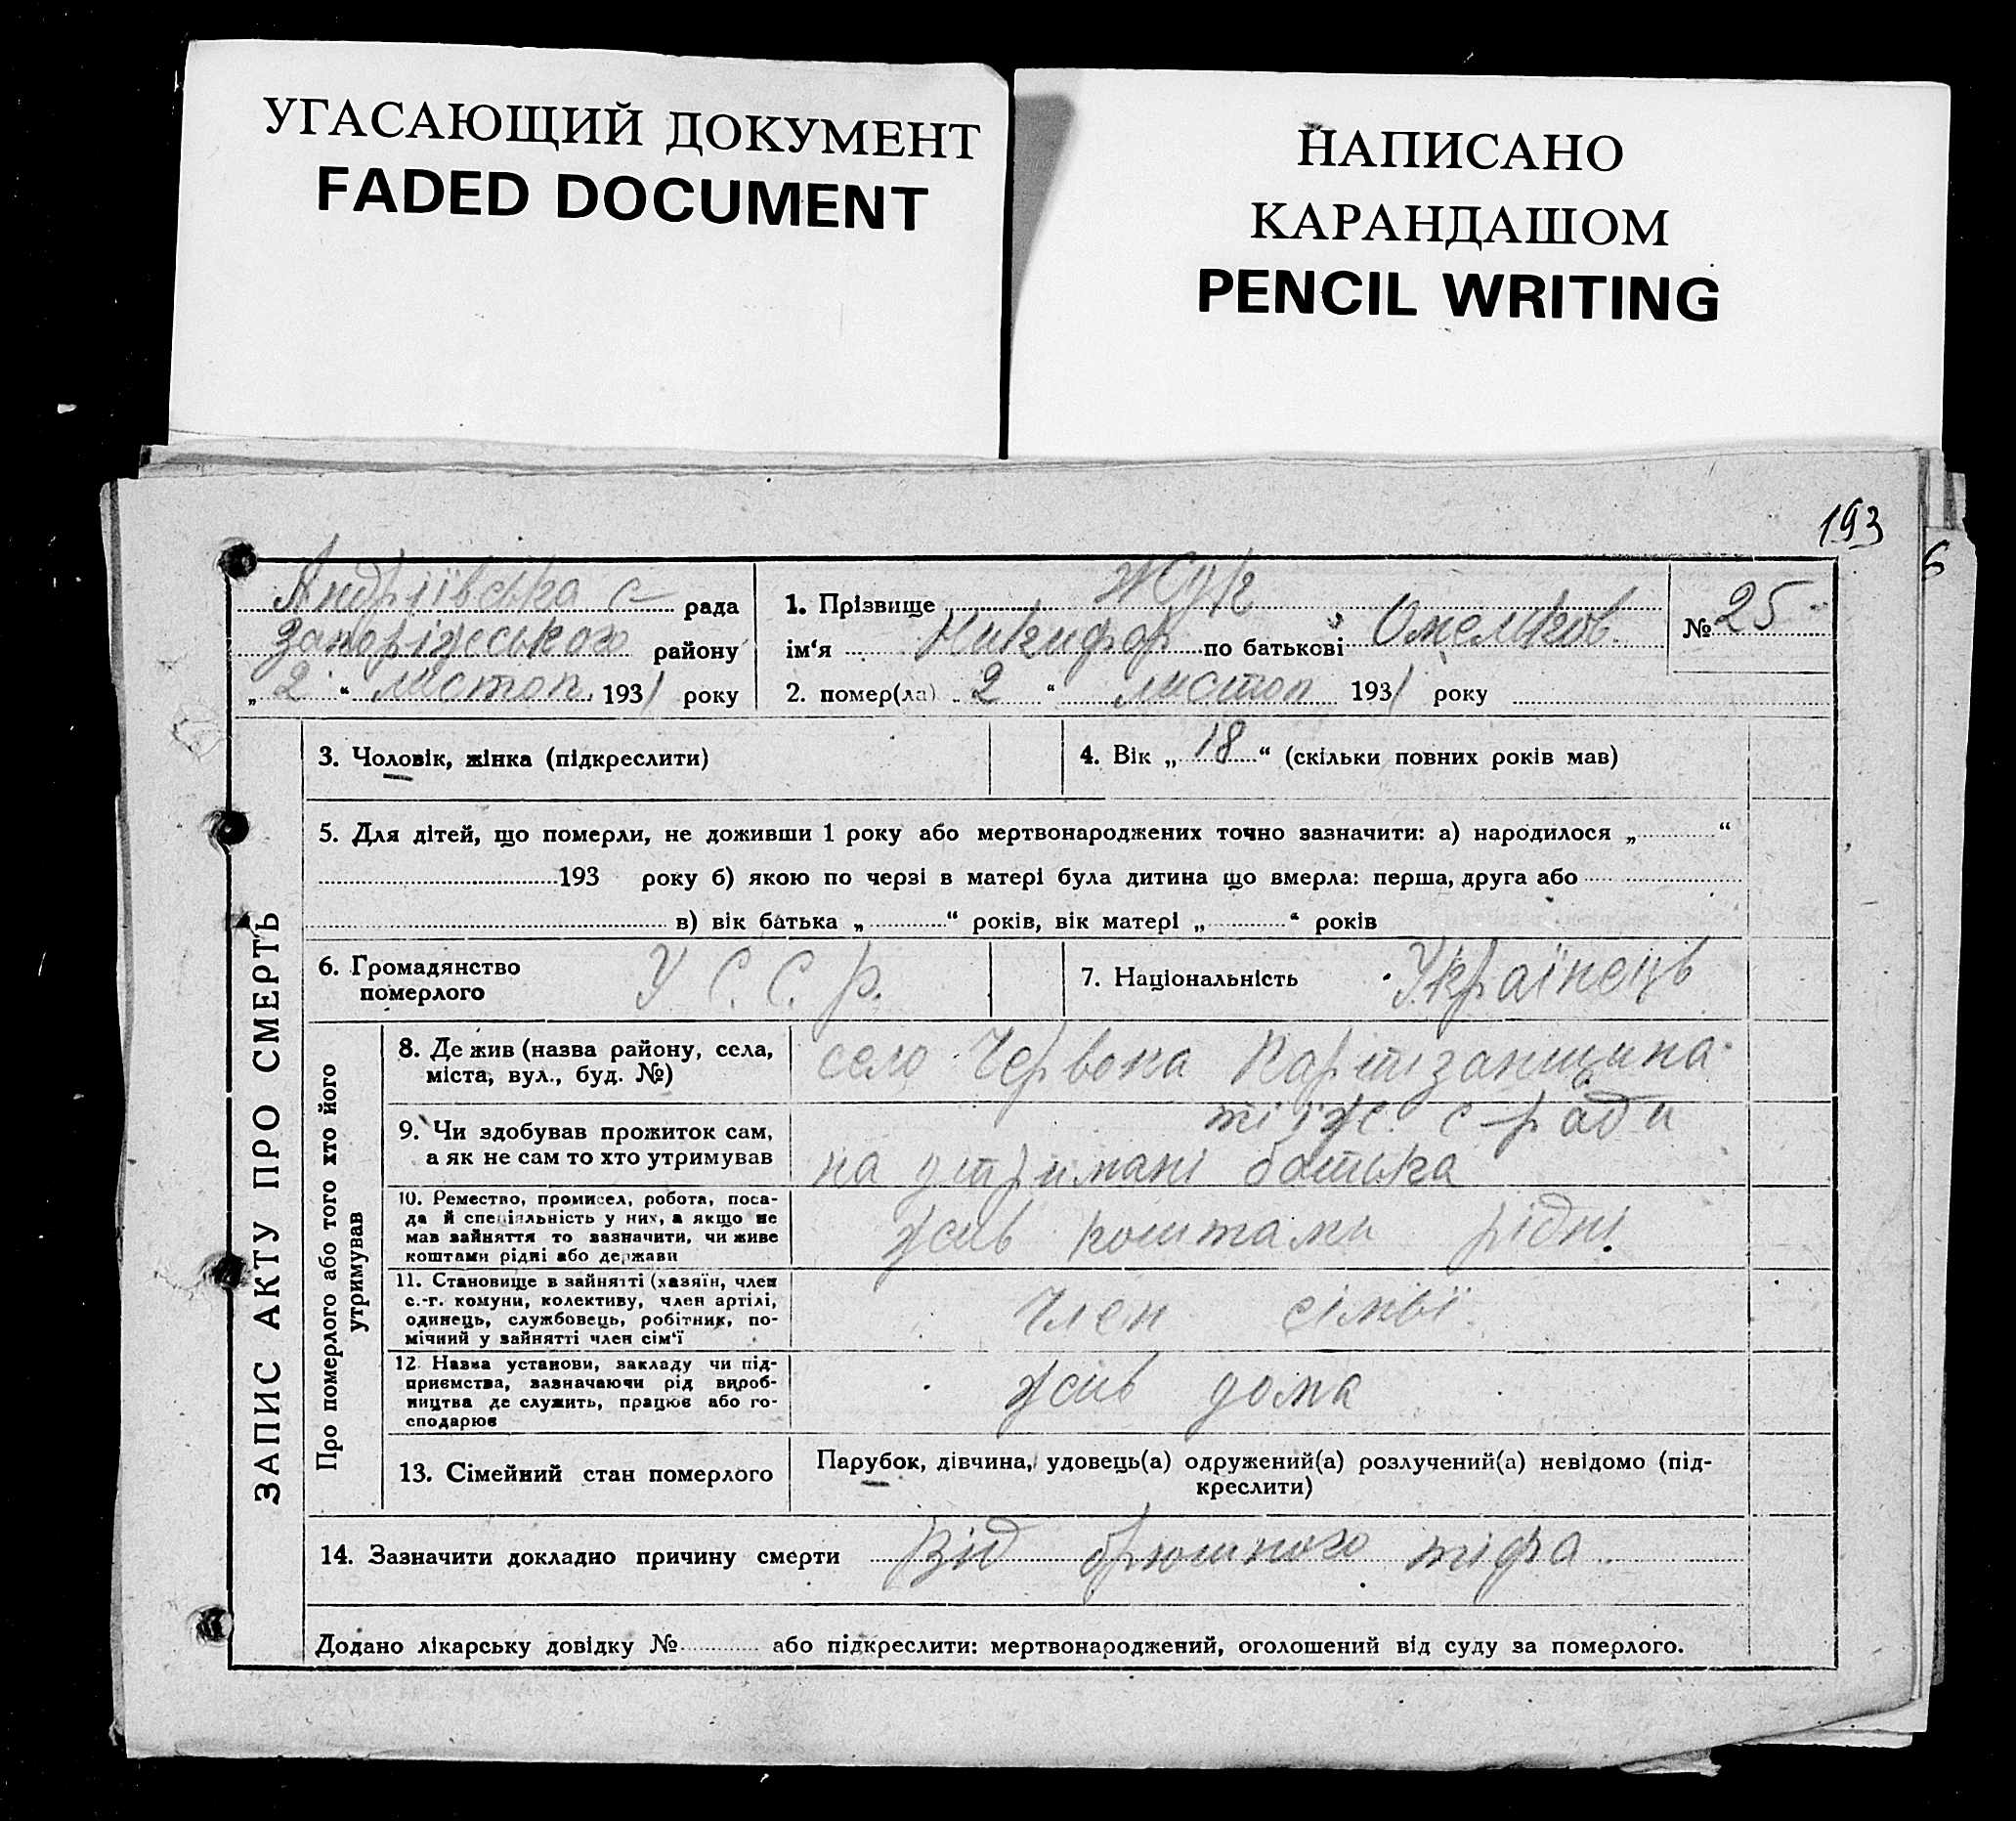 УГАСАЮЩИЙ ДОКУМЕНТ
FADED DOCUMENT
НАПИСАНО
КАРАНДАШОМ
PENCIL WRITING
193
6
Андріївська с рада
Запоріжського району
„ 2 “ листоп. 1931 року
1. Прізвище Жук
ім‘я Никифор по батькові Омельков.
2. помер(ла) 2 “ листоп 1931 року
№ 25
ЗАПИС АКТУ ПРО СМЕРТЬ
3. Чоловік, жінка (підкреслити)
4. Вік „ 18 “ (скільки повних років мав)
5. Для дітей, що померли, не доживши 1 року або мертвонароджених точно зазначити: а) народилося „ “
193 року б) якою по черзі в матері була дитина що вмерла: перша, друга або
в) вік батька „ “ років, вік матері „ “ років
6. Громадянство
померлого
У. С. С. р.
7. Національність Українець
Про померлого або того хто його
утримував
8. Де жив (назва району, села,
міста, вул., буд. №)
село Червона Партізанщина
тіж с-ради
9. Чи здобував прожиток сам,
а як не сам то хто утримував
на утримані батька
10. Ремество, промисел, робота, поса-
да й спеціяльність у них, а якщо не
мав зайняття то зазначити, чи живе
коштами рідні або держави
жив коштами рідні.
11. Становище в зайнятті (хазяїн, член
с.-г. комуни, колективу, член артілі,
одинець, службовець, робітник, по-
мічний у зайнятті член сім‘ї
Член сімьї
12. Назва установи, закладу чи під-
приємства, зазначаючи рід вироб-
ництва де служить, працює або го-
сподарює
жив дома
13. Сімейний стан померлого
Парубок, дівчина, удовець(а) одружений(а) розлучений(а) невідомо (під-
креслити)
14. Зазначити докладно причину смерти Від брюшного тіфа
Додано лікарську довідку № або підкреслити: мертвонароджений, оголошений від суду за померлого.